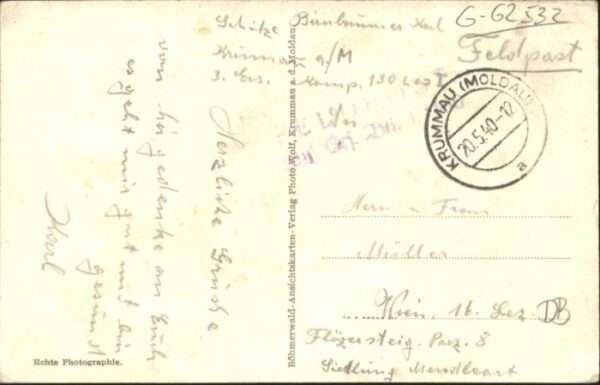 G-62532
Feldpost
Schütze Birnbaumer Karl
Krumau a/M
3. Ers. Komp. 130 I
KRUMMAU (MOLDAU)
20.5.40-12
a
Herzliche Grüsse
von hier gedenke an Euch
es geht mir gut und bin
gesund
Karl
Böhmerwald-Ansichtskarten-Verlag Photo Wolf, Krummau a.d. Moldau
Herrn u Frau
Müller
Wien, 16. Bez.
DB
Flözersteig. Parz. 8
Siedlung
Echte Photographie.